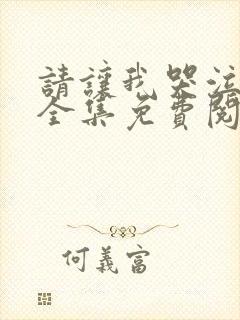 請讓我哭泣
全集免費閱
何義富